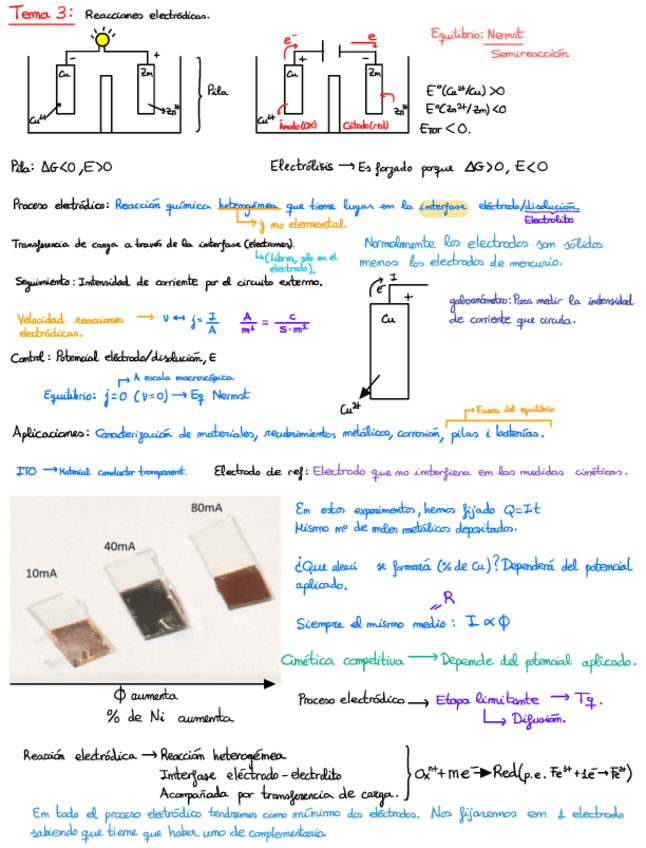 Tema 3: Reacciones electródicas.
Equilibrio: Nernst
Semireacción
e⁻
e
- + Cu Zn Cu²⁺ Zn²⁺ Pila
Cu Zn Cu²⁺ Ánodo(ox) Cátodo(red) Zn²⁺
E°(Cu²⁺/Cu) >0
E°(Zn²⁺/Zn) <0
ETOT < 0.
Pila: ΔG<0, E>0
Electrólisis → Es forzado porque ΔG>0, E<0
Proceso electródico: Reacción química heterogénea que tiene lugar en la interfase eléctrodo/disolución.
y no elemental.
Electrolito
Transferencia de carga a través de la interfase (electrones)
(Libres, sólo en el
electrodo).
Normalmente los electrodos son sólidos
menos los electrodos de mercurio.
Seguimiento: Intensidad de corriente por el circuito externo.
e⁻ I
+
Cu
Cu²⁺
galvanómetro: Para medir la intensidad
de corriente que circula.
Velocidad reacciones → v ↔ j = I/A A/m² = C/s·m²
electródicas.
Control: Potencial eléctrodo/disolución, E
A escala macroscópica
Equilibrio: j=0 (v=0) → Eq Nernst
Fuera del equilibrio
Aplicaciones: Caracterización de materiales, recubrimientos metálicos, corrosión, pilas i baterías.
ITO → Material conductor transparent.
Electrodo de ref: Electrodo que no interfiera en las medidas cinéticas.
80mA
40mA
10mA
En estos experimentos, hemos fijado Q=It
Mismo nº de moles metálicos depositados.
¿Que aleaci se formará (% de Cu)? Dependerá del potencial
aplicado.
R
Siempre el mismo medio: I ∝ ϕ
Cinética competitiva → Depende del potencial aplicado.
ϕ aumenta
% de Ni aumenta
Proceso electródico → Etapa limitante → Tq.
Difusión.
Reacción electródica → Reacción heterogénea
Interfase eléctrodo-electrolito
Acompañada por transferencia de carga.
Oxⁿ⁺+ne⁻→Red(p.e. Fe³⁺+1e⁻→Fe²⁺)
En todo el proceso electródico tendremos como mínimo dos eléctrodos. Nos fijaremos en 1 electrodo
sabiendo que tiene que haber uno de complementario.